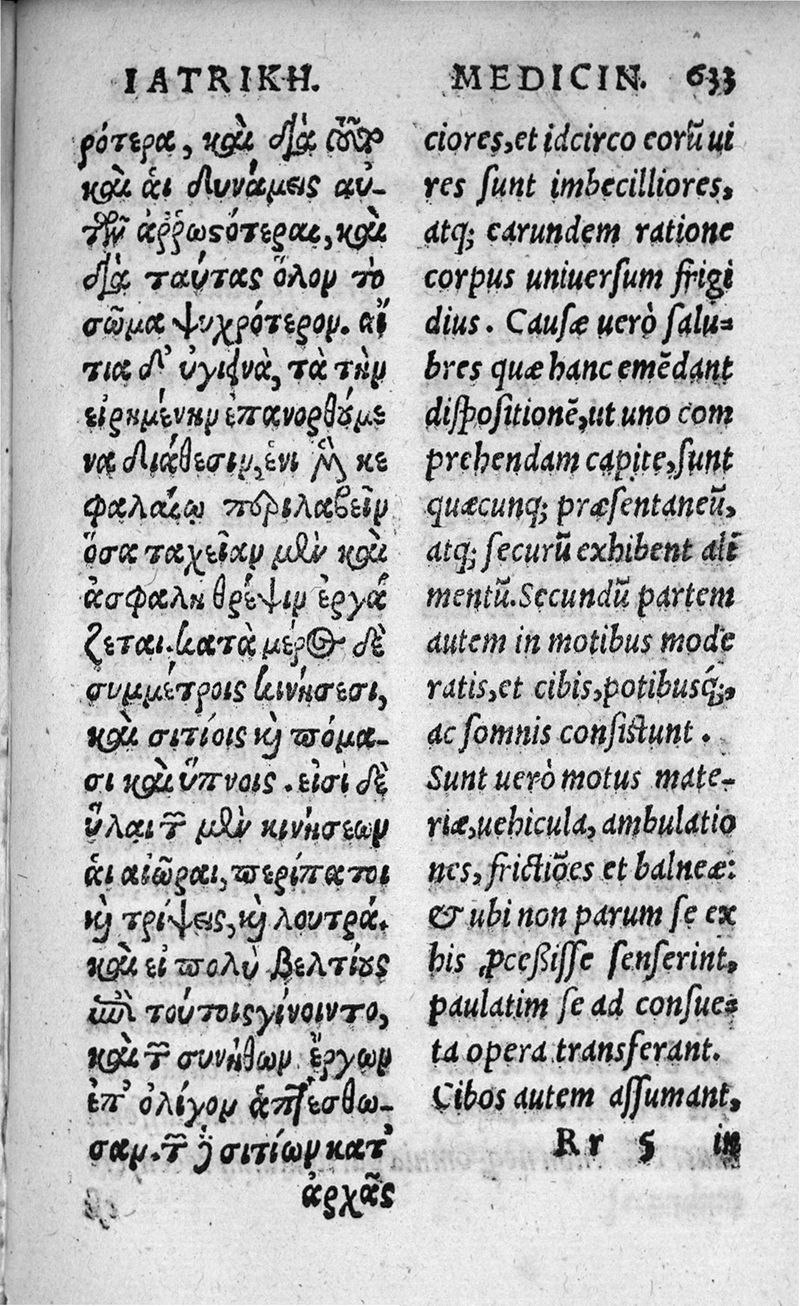 ΙΑΤΡΙΚΗ.
ρότερα, καὶ διὰ τοῦτο
καὶ ἁι δυνάμεις αὐ-
τῶν ἀῤῥωστότεραι, καὶ
διὰ ταύτας ὅλον τὸ
σῶμα ψυχρότερον. αἴ
τια δ' ὑγιεινὰ, τὰ τὴν
εἰρημένην ἐπανορθούμε
να διάθεσιν, ἑνὶ μὲν κε
φαλαίῳ περιλαβεῖν
ὅσα ταχεῖαν μὲν καὶ
ἀσφαλῆ θρέψιν ἐργά
ζεται. κατὰ μέρος δὲ
συμμέτροις κινήσεσι,
καὶ σιτίοις κỳ πόμα-
σι καὶ ὕπνοις. εἰσὶ δὲ
ὗλαι τῶν μὲν κινήσεων
ἁι αἰῶραι, περίπατοι
καὶ τρίψεις, καὶ λουτρά.
καὶ εἰ πολὺ βελτίους
ἐπὶ τούτοις γίνοιντο,
καὶ τῶν συνήθων ἔργων
ἐπ' ὀλίγον ἁπτέσθω-
σαν. τῶν δὲ σιτίων κατ'
ἀρχὰς
MEDICIN. 633
ciores, et idcirco eorũ ui
res sunt imbecilliores,
atq; earundem ratione
corpus uniuersum frigi
dius. Causæ uerò salu-
bres quæ hanc emẽdant
dispositionẽ, ut uno com
prehendam capite, sunt
quæcunq; præsentaneũ,
atq; securũ exhibent ali
mentũ. Secundũ partem
autem in motibus mode
ratis, et cibis, potibusq́;,
ac somnis consistunt.
Sunt uerò motus mate-
riæ, uehicula, ambulatio
nes, frictiões et balneæ:
& ubi non parum se ex
his ꝓceßisse senserint,
paulatim se ad consue-
ta opera transferant.
Cibos autem assumant,
Rr 5 in